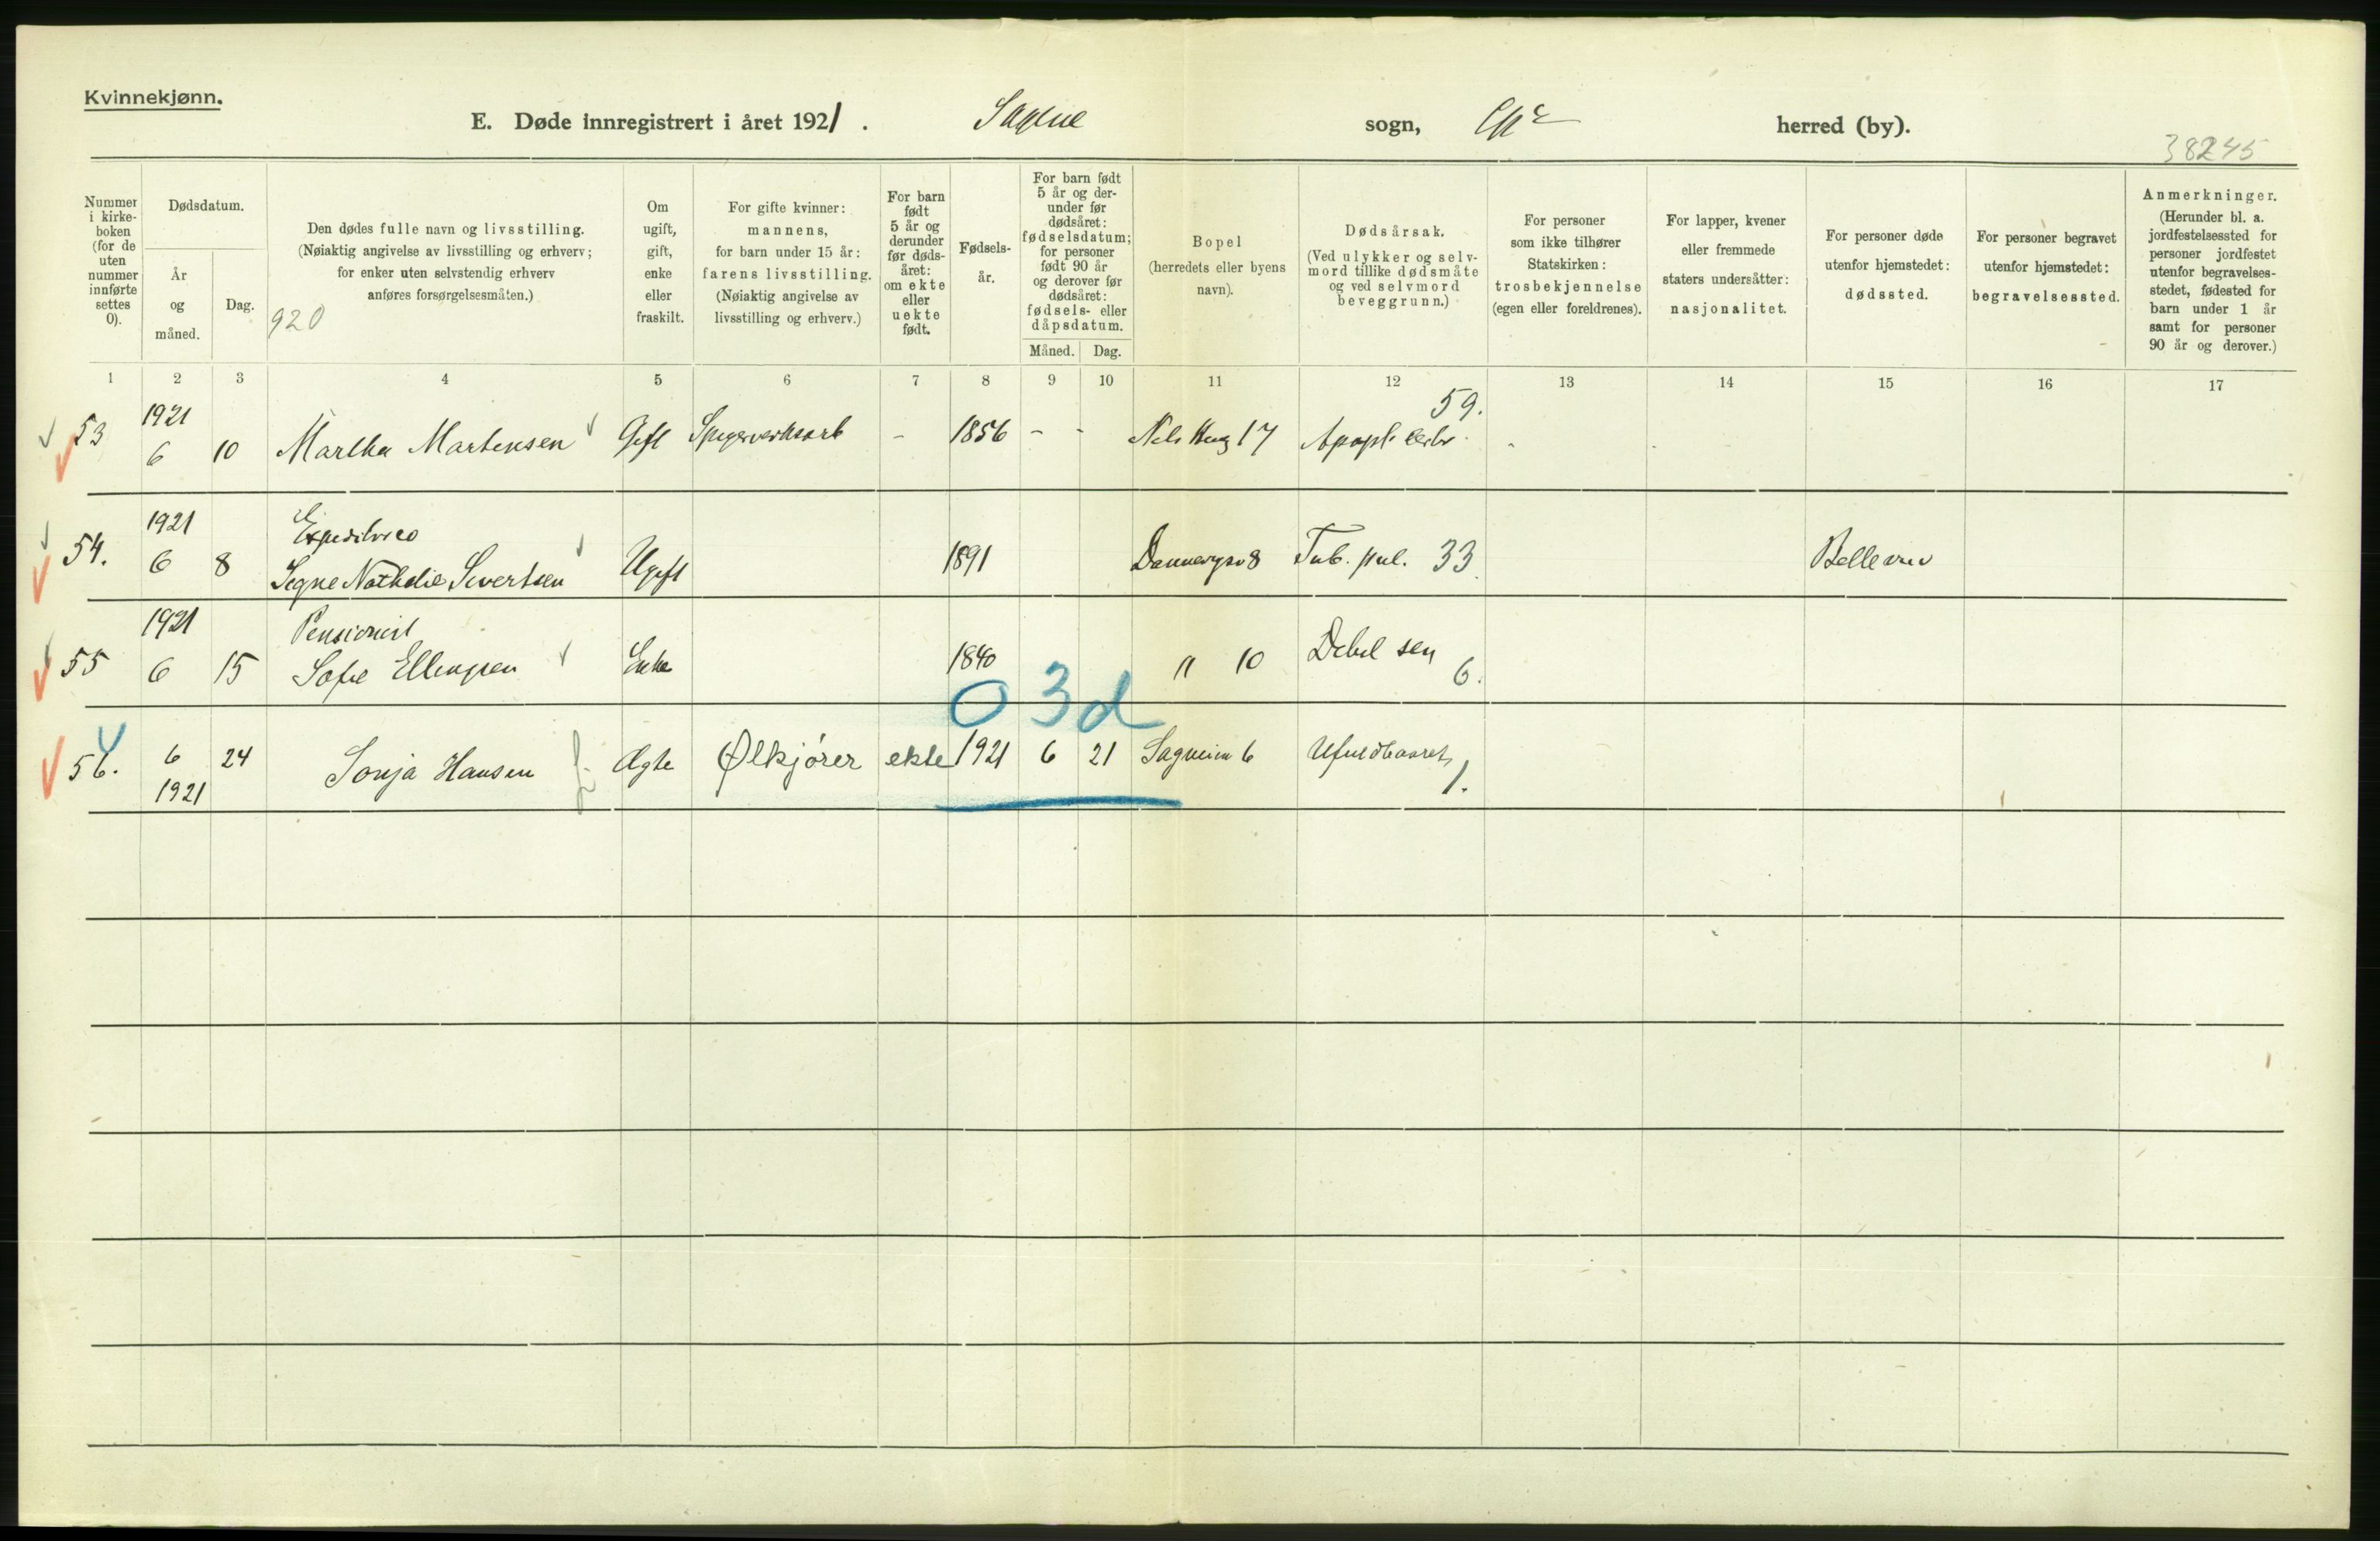 Kvinnekjønn.
E. Døde innregistrert i året 1921. Sagene sogn, herred (by).
38245
Nummer i kirke-boken (for de uten nummer innførte settes 0).
Dødsdatum.
År og måned.
Dag.
Den dødes fulle navn og livsstilling.
(Nøiaktig angivelse av livsstilling og erhverv;
for enker uten selvstendig erhverv
anføres forsørgelsesmåten.)
920
Om ugift, gift, enke eller fraskilt.
For gifte kvinner:
mannens,
for barn under 15 år:
farens livsstilling.
(Nøiaktig angivelse av
livsstilling og erhverv.)
For barn født 5 år og derunder før døds-året: om ekte eller uekte født.
Fødsels-år.
For barn født 5 år og der-under før dødsåret: fødselsdatum; for personer født 90 år og derover før dødsåret: fødsels- eller dåpsdatum.
Måned. Dag.
Bopel
(herredets eller byens
navn).
Dødsårsak.
(Ved ulykker og selv-
mord tillike dødsmåte
og ved selvmord
beveggrunn.)
For personer
som ikke tilhører
Statskirken:
trosbekjennelse
(egen eller foreldrenes).
For lapper, kvener
eller fremmede
staters undersåtter:
nasjonalitet.
For personer døde
utenfor hjemstedet:
dødssted.
For personer begravet
utenfor hjemstedet:
begravelsessted.
Anmerkninger.
(Herunder bl. a.
jordfestelsessted for
personer jordfestet
utenfor begravelses-
stedet, fødested for
barn under 1 år
samt for personer
90 år og derover.)
1 2 3 4 5 6 7 8 9 10 11 12 13 14 15 16 17
53 1921 6 10 Martha Martensen Gift Spigerverksarb - 1856 - - 17 Apopl. cerbr. 59.
54. 1921 6 8
Signe Nathalie Sivertsen Ugift 1891 8 Tub. pul. 33
55 1921 6 15 Pensionist
Sofie Ellingsen Enke 1840 " 10 Debil sen 6.
03d
56. 6 24 Sonja Hansen Ægte Ølkjører ekte 1921 6 21 6 Ufuldbaaret 1.
1921